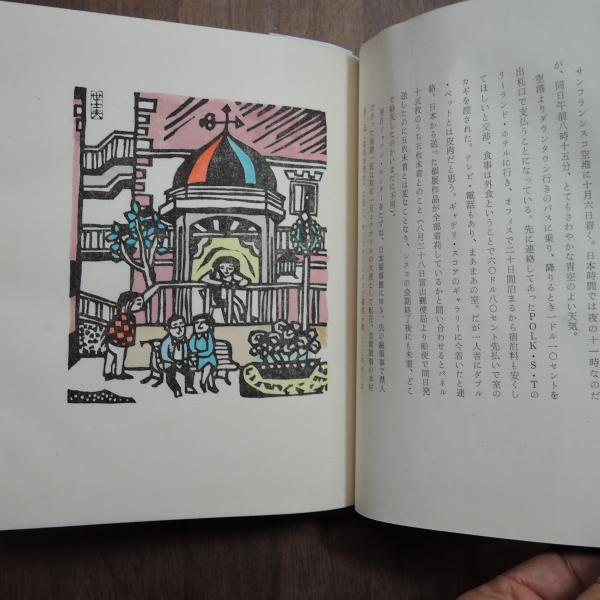 サンフランシスコ空港に十月六日着く。日本時間では夜の十一時なのだ
が、同日午前八時十五分、とてもさわやかな青空のよい天気。
空港よりダウンタウン行きのバスに乗り、降りるとき一ドル一〇セントを
出札口で支払うことになっている。先に連絡してあったPOLK・S・Tの
リーランド・ホテルに行き、オフィスで二十日間泊まるから宿泊料も安くし
てほしいと交渉、食事は外食ということで六〇ドル八〇セント先払いで室の
カギを渡された。テレビ・電話もあり、まあまあの室。だが一人者にダブル
・ベットとは皮肉だと思う。ギャデリ・スコアのギャラリーに今着いたと連
絡、日本から送った個展作品が全部着荷しているかと問い合わせるとパネル
十五枚のうち五枚未着とのこと（八月二十八日富山郵便局より船便で同日発
送したのに五枚未着とは変なことなり、シスコの会期終了後にも未着、どこ